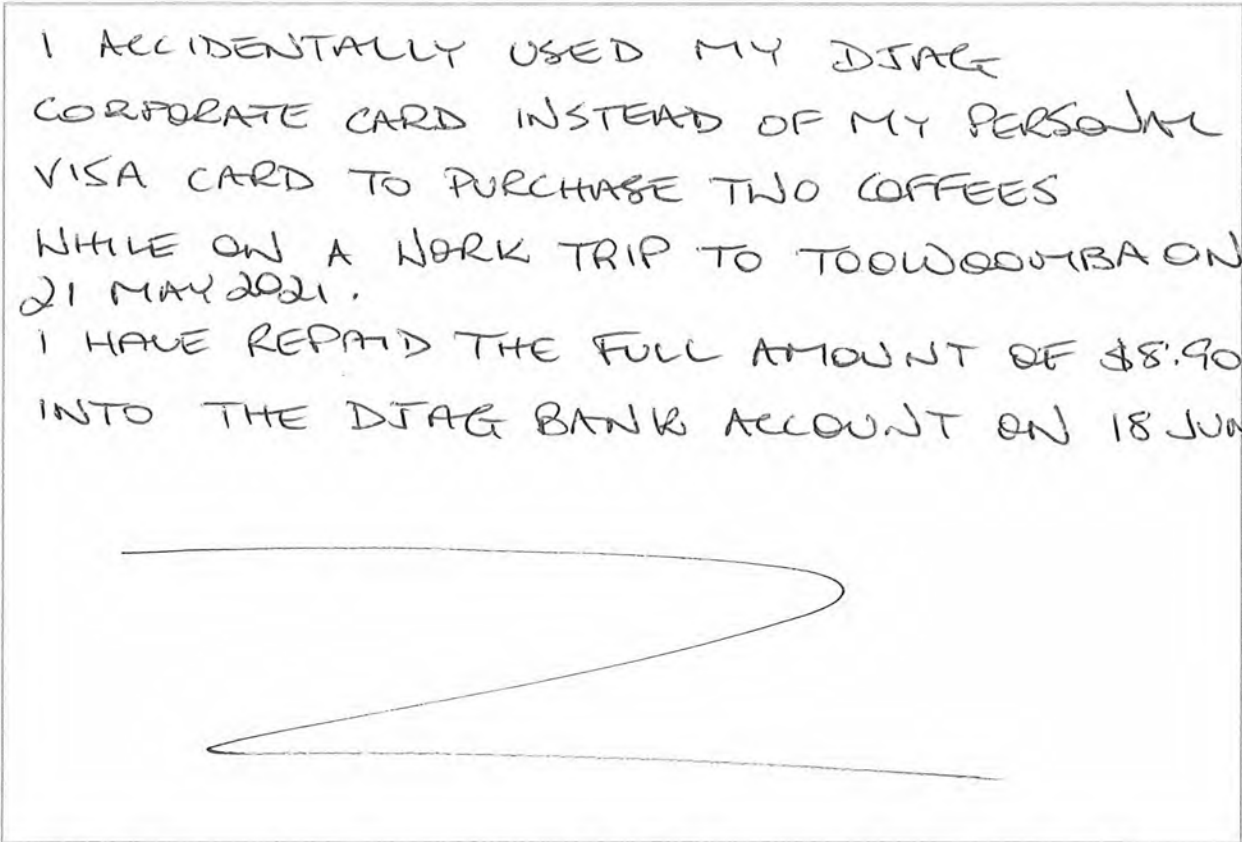 I ACCIDENTALLY USED MY DJAG
CORPORATE CARD INSTEAD OF MY PERSONAL
VISA CARD TO PURCHASE TWO COFFEES
WHILE ON A WORK TRIP TO TOOWOOMBA ON
21 MAY 2021.
I HAVE REPAID THE FULL AMOUNT OF $8.90
INTO THE DJAG BANK ACCOUNT ON 18 JUN